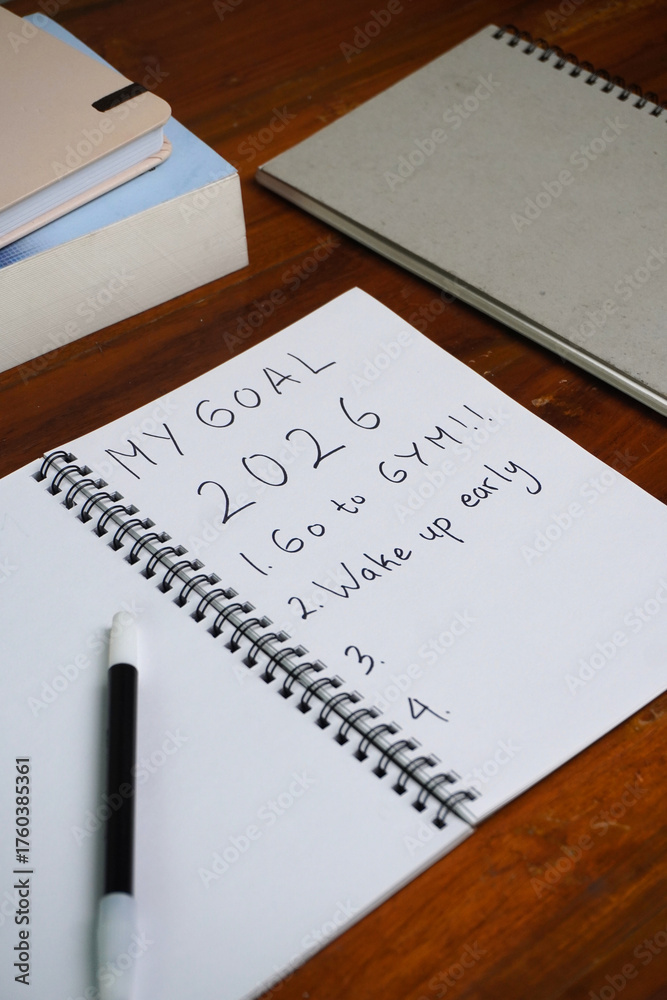 MY GOAL
2026
1. Go to GYM!!
2. Wake up early
3.
4.
Adobe Stock | #1760385361